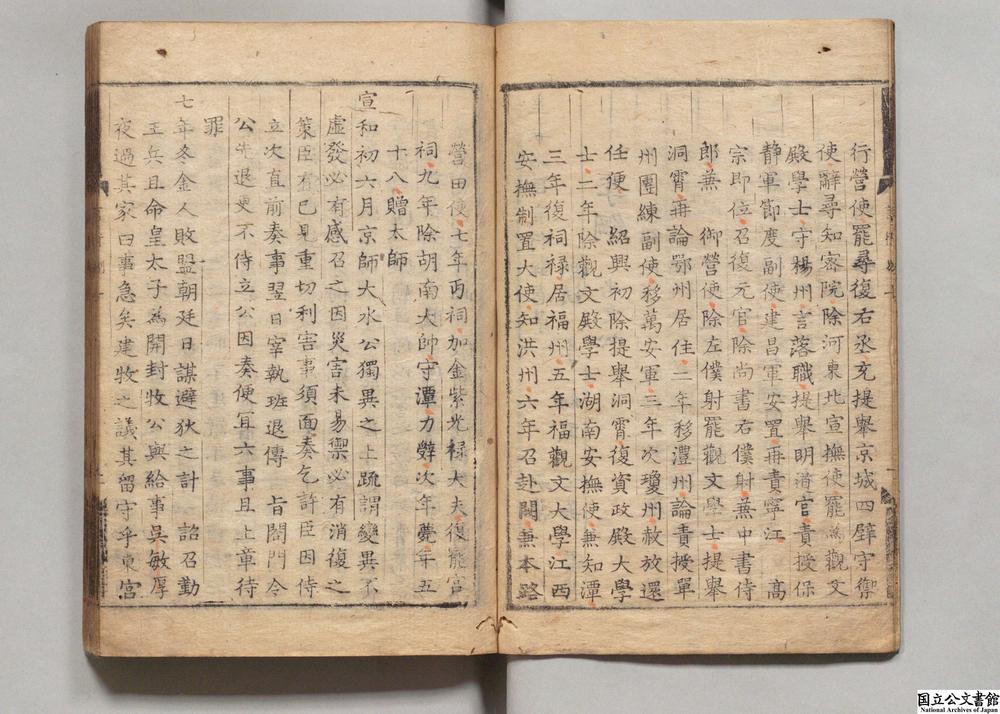 行營使罷尋復右丞充提舉京城四壁守禦
使辭尋知密院除河東北宣撫使罷爲觀文
殿學士守楊州言落職提舉明道官責授保
静軍節度副使建昌軍安置再責寧江 高
宗即位召復元官除尚書右僕射兼中書侍
郎兼 御營使除左僕射罷觀文學士提舉
洞霄再論鄂州居住二年移澧州論責授單
州團練副使移萬安軍三年次瓊州赦放還
任便 紹興初除提舉洞霄復資政殿大學
士二年除觀文殿學士湖南安撫使兼知潭
三年復祠禄居福州五年福觀文大學江西
安撫制置大使知洪州六年召赴闕兼本路
營田使七年丐祠加金紫光禄大夫復罷宮
祠九年除胡南大帥守潭力辭次年薨年五
十八贈太師
宣和初六月京師大水公獨異之上疏謂變異不
虛發必有感召之因災害未易禦必有消復之
策臣有已見重切利害事須面奏乞許臣因侍
立次直前奏事翌日宰執班退傳 旨閤門令
公先退更不侍立公因奏便冝六事且上章待
罪
七年冬金人敗盟朝廷日謀避狄之計 詔召勤
王兵且命皇太子爲開封牧公與給事吳敏厚
夜過其家曰事急矣建牧之議其留守乎東宮
国立公文書館
National Archives of Japan